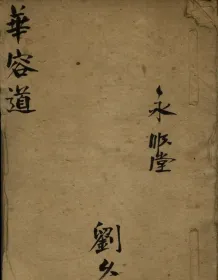 華容道
永順堂
劉久